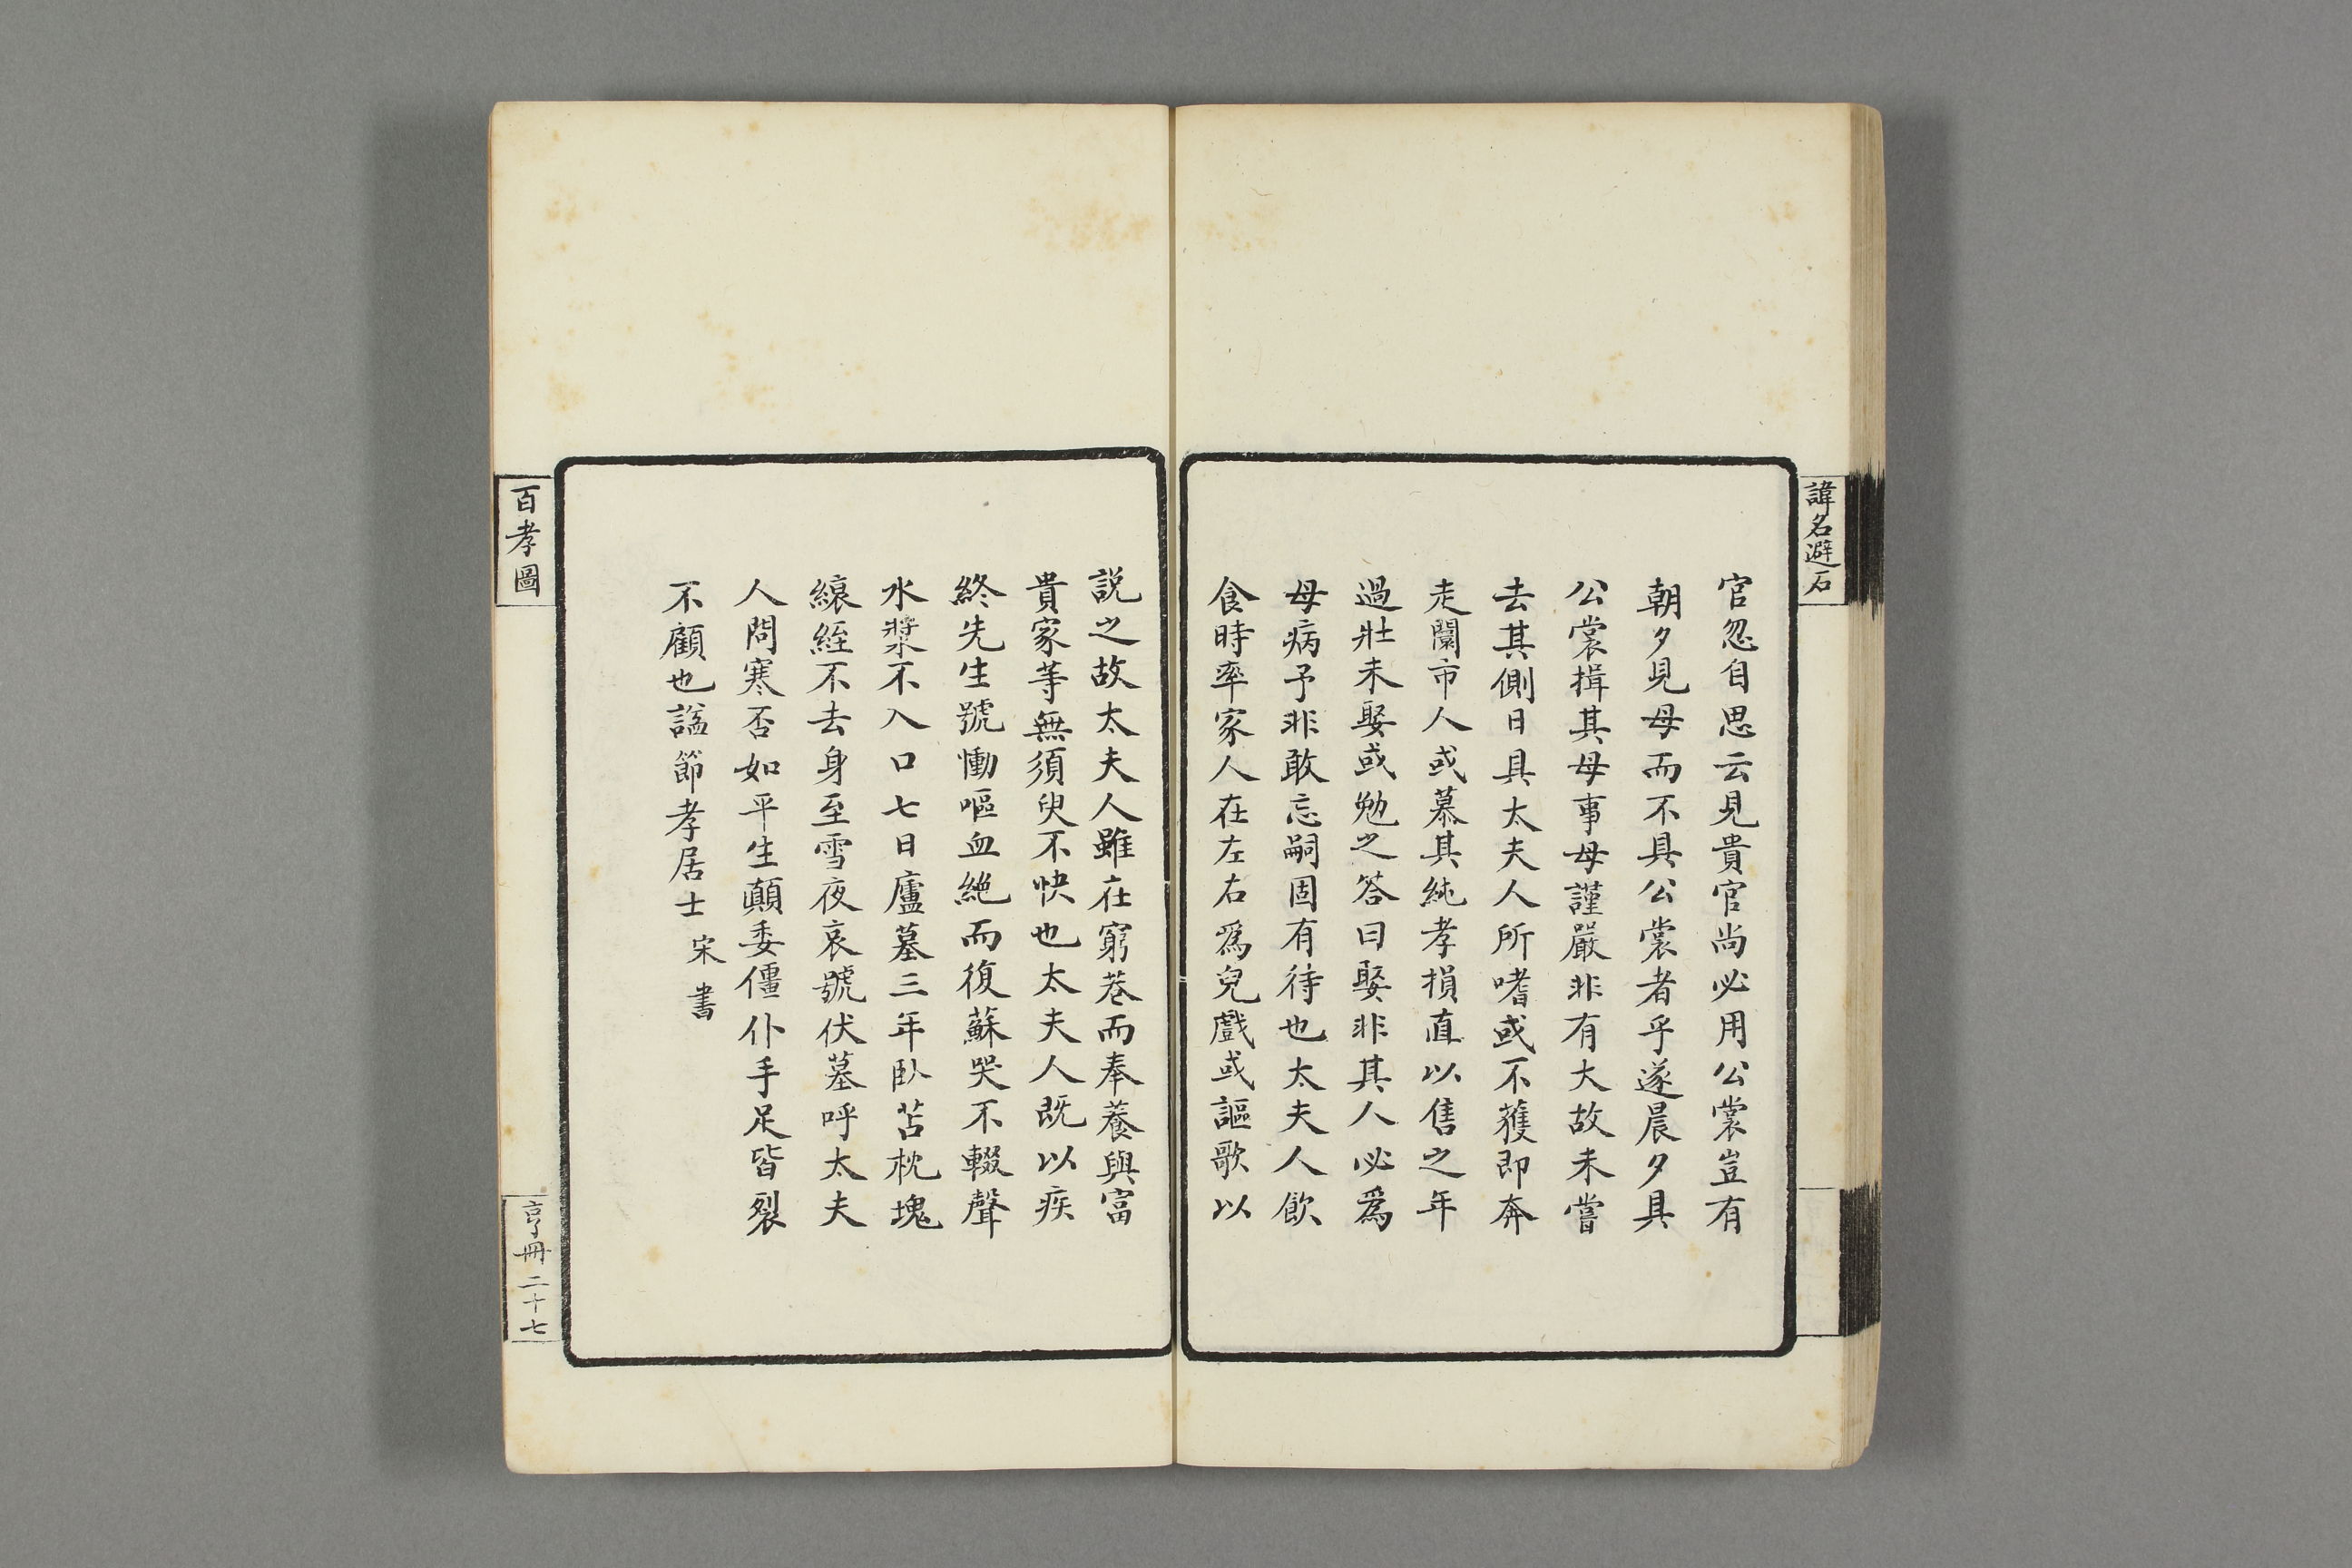 諱名避石
官忽自思云見貴官尚必用公裳豈有
朝夕見母而不具公裳者乎遂晨夕具
公裳揖其母事母謹嚴非有大故未嘗
去其側日具太夫人所嗜或不獲即奔
走闤市人或慕其純孝損直以售之年
過壯未娶或勉之答曰娶非其人必爲
母病予非敢忘嗣固有待也太夫人飲
食時率家人在左右爲兒戲或謳歌以
説之故太夫人雖在窮巷而奉養與富
貴家等無須臾不快也太夫人既以疾
終先生號慟嘔血絶而復蘇哭不輟聲
水漿不入口七日廬墓三年臥苫枕塊
縗絰不去身至雪夜哀號伏墓呼太夫
人問寒否如平生顛委僵仆手足皆裂
不顧也謚節孝居士 宋書
百孝圖
亨冊二十七